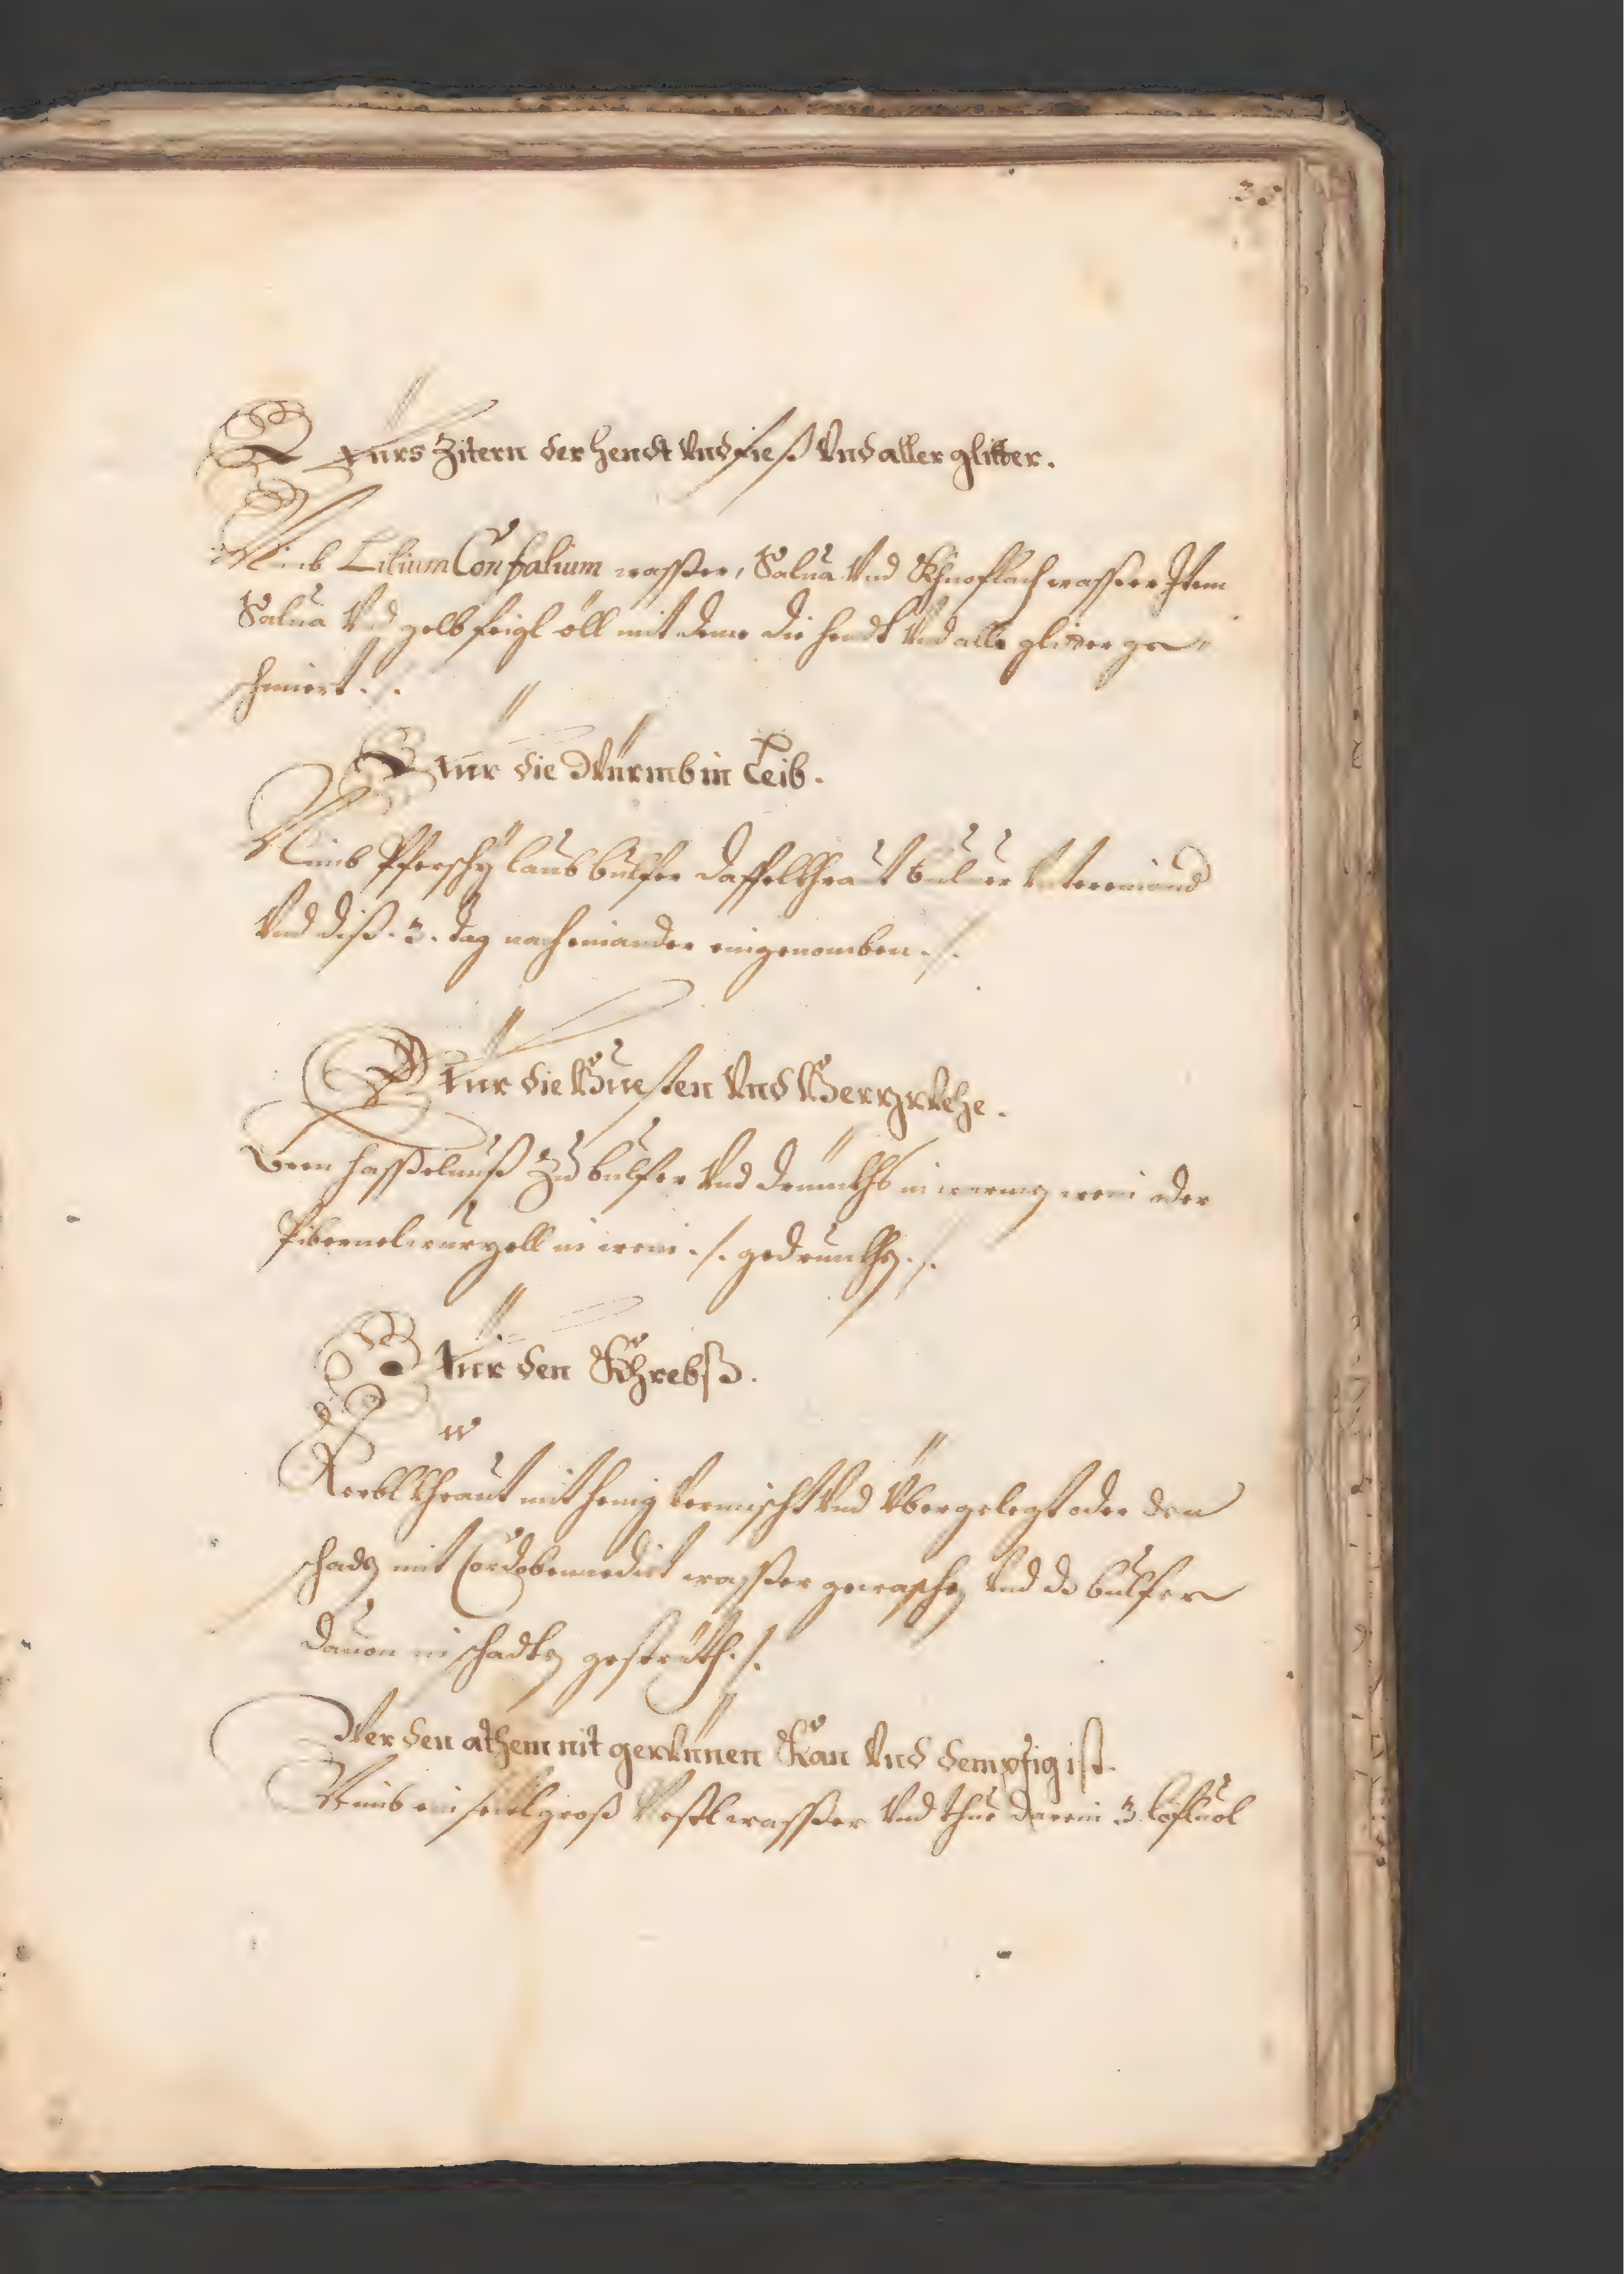 Fürs Zitern der hendt Vnd fieß Vnd aller glitter.
Nimb Lilium Confalium wasser, Salua Vnd Khnoflach wasser Item
Salua Vnd gelb feigl öll mit deme die hendt Vnd alle glitter ge-
schmiert ./.
Für die Würmb in Leib.
Nimb Pferschÿ laub bulfer
Vnd diß .3. tag nach einander eingenomben ./.
Für die Huesten Vnd Herzwehe.
Bren hasselnuß Zu bulfer Vnd in warmg wein oder
Pibernelwurzell in wein ./. gedrunkhen ./.
Für den Khrebß.
Kerblkhraut mit henig Vermischt Vnd Vbergelegt oder den
schaden mit Cordobennedict wasser gewaschen Vnd dz bulfer
dauon in schadten gesträth ./.
Wer den athem nit gewünen Kan Vnd dempfig ist.
Nimb ein groß wasser Vnd thue darein 3. löfluol